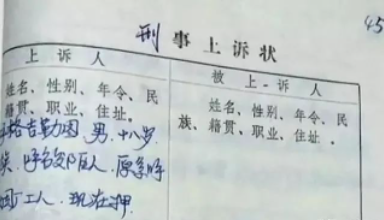 刑事上诉状
45
上诉人
被上诉人
姓名、性别、年令、民
籍贯、职业、住址。
姓名、性别、年令、民
族、籍贯、职业、住址.
格吉勒图 男.十八岁.
族.呼和郊区人.原系呼
工人.现在押.